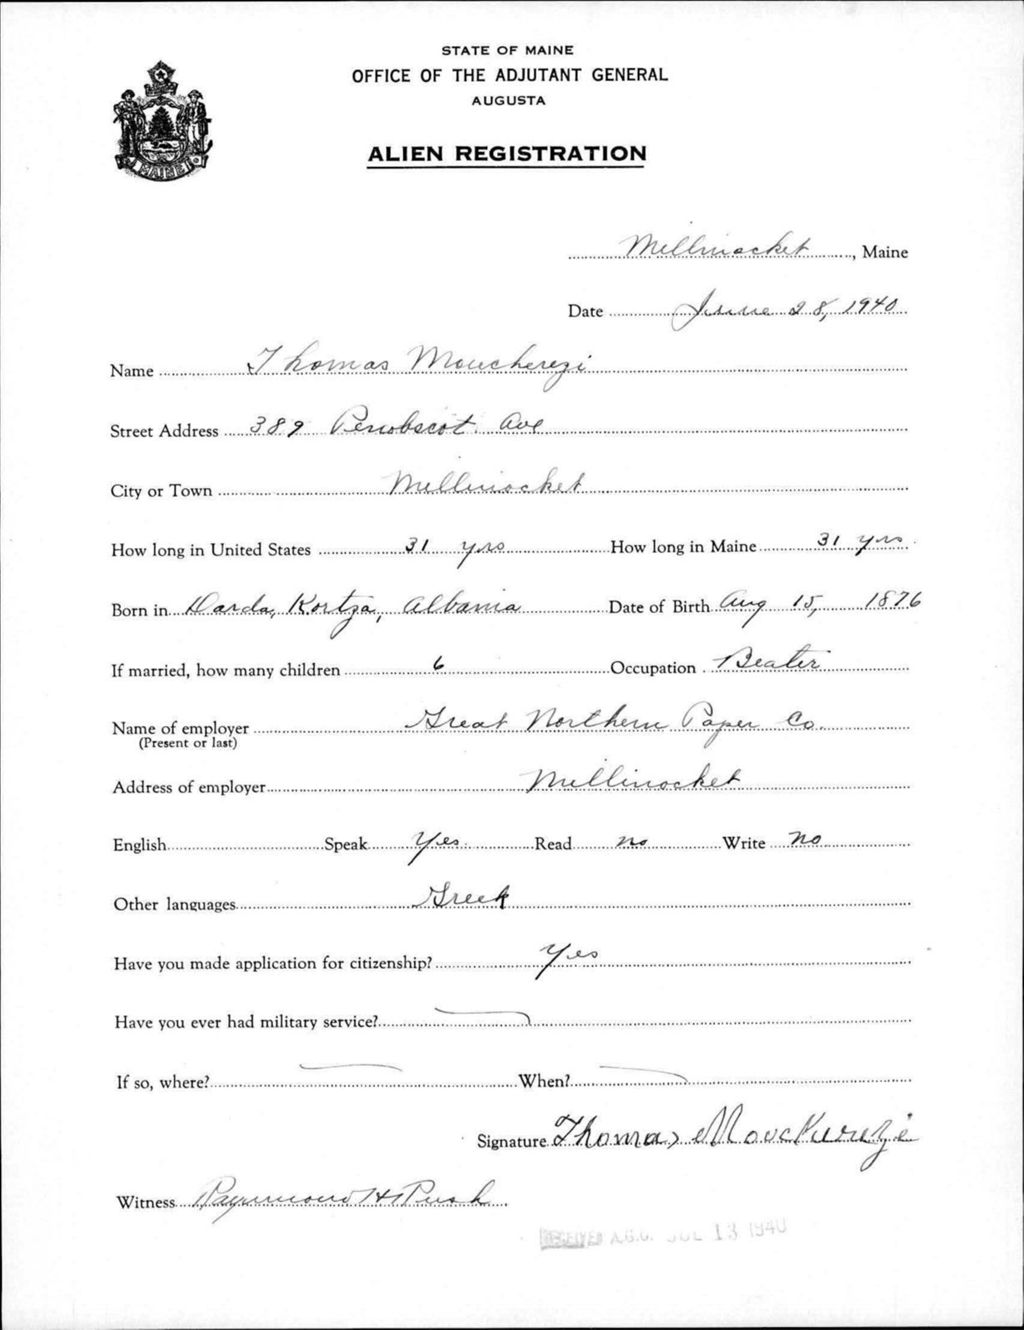 STATE OF MAINE
OFFICE OF THE ADJUTANT GENERAL
AUGUSTA
ALIEN REGISTRATION
MAINE
Millinocket, Maine
Date June 28, 1940
Name Thomas Moucherezi
Street Address 389 Penobscot Ave
City or Town Millinocket
How long in United States 31 yrs How long in Maine 31 yrs
Born in Darda, Kortza, Albania Date of Birth Aug 15, 1876
If married, how many children 6 Occupation Beater
Name of employer Great Northern Paper Co.
(Present or last)
Address of employer Millinocket
English Speak Yes Read no Write No
Other languages Greek
Have you made application for citizenship? Yes
Have you ever had military service?
If so, where? When?
Signature Thomas
Witness Raymond H Rush
RECEIVED A.G.O. JUL 13 1940